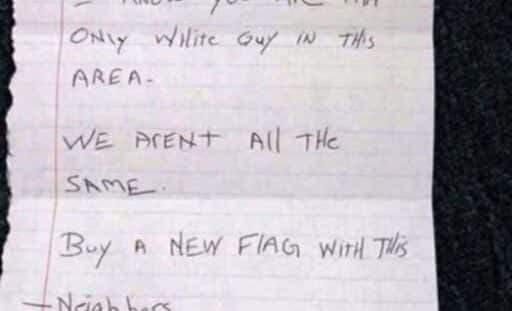 ONly White Guy IN THis
AREA-
WE ArENt All THe
SAME.
Buy A NEW FlAG WITH THis
- Neighbors